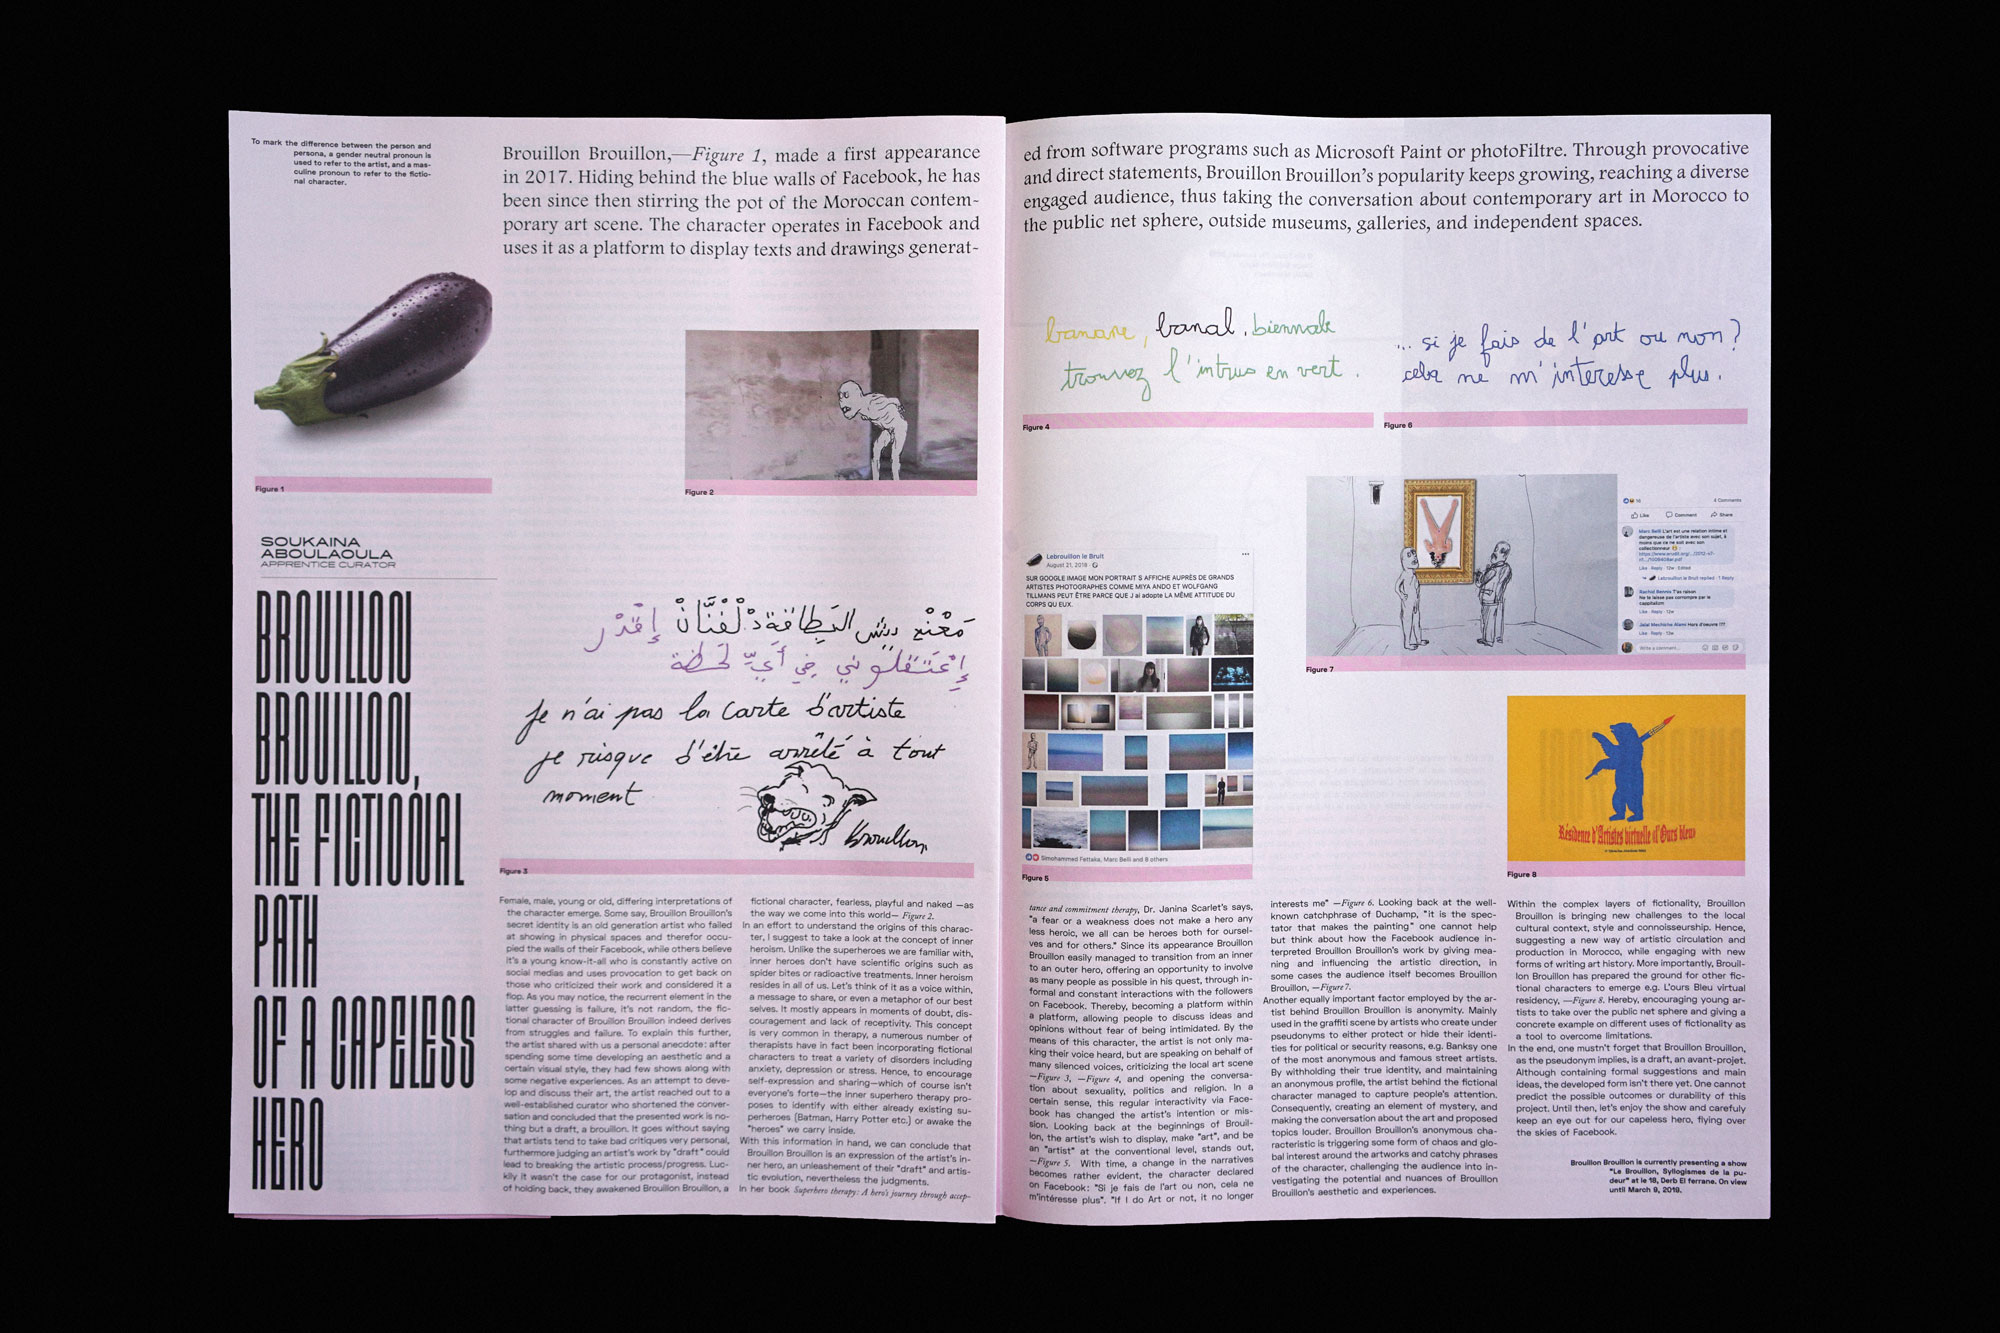 To mark the difference between the person and
persona, a gender neutral pronoun is
used to refer to the artist, and a mas-
culine pronoun to refer to the fictio-
nal character.
Brouillon Brouillon,—Figure 1, made a first appearance
in 2017. Hiding behind the blue walls of Facebook, he has
been since then stirring the pot of the Moroccan contem-
porary art scene. The character operates in Facebook and
uses it as a platform to display texts and drawings generat-
Figure 1
Figure 2
SOUKAINA
ABOULAOULA
APPRENTICE CURATOR
BROUILLON
BROUILLON,
THE FICTIONAL
PATH
OF A CAPELESS
HERO
إقدر
إعتقلوني في أي لحظة
je n'ai pas la carte d'artiste
je risque d'être arrêté à tout
moment
Brouillon
Figure 3
Female, male, young or old, differing interpretations of
the character emerge. Some say, Brouillon Brouillon's
secret identity is an old generation artist who failed
at showing in physical spaces and therefor occu-
pied the walls of their Facebook, while others believe
it's a young know-it-all who is constantly active on
social medias and uses provocation to get back on
those who criticized their work and considered it a
flop. As you may notice, the recurrent element in the
latter guessing is failure, it's not random, the fic-
tional character of Brouillon Brouillon indeed derives
from struggles and failure. To explain this further,
the artist shared with us a personal anecdote: after
spending some time developing an aesthetic and a
certain visual style, they had few shows along with
some negative experiences. As an attempt to deve-
lop and discuss their art, the artist reached out to a
well-established curator who shortened the conver-
sation and concluded that the presented work is no-
thing but a draft, a brouillon. It goes without saying
that artists tend to take bad critiques very personal,
furthermore judging an artist's work by "draft" could
lead to breaking the artistic process/progress. Luc-
kily it wasn't the case for our protagonist, instead
of holding back, they awakened Brouillon Brouillon, a
fictional character, fearless, playful and naked —as
the way we come into this world— Figure 2.
In an effort to understand the origins of this charac-
ter, I suggest to take a look at the concept of inner
heroism. Unlike the superheroes we are familiar with,
inner heroes don't have scientific origins such as
spider bites or radioactive treatments. Inner heroism
resides in all of us. Let's think of it as a voice within,
a message to share, or even a metaphor of our best
selves. It mostly appears in moments of doubt, dis-
couragement and lack of receptivity. This concept
is very common in therapy, a numerous number of
therapists have in fact been incorporating fictional
characters to treat a variety of disorders including
anxiety, depression or stress. Hence, to encourage
self-expression and sharing—which of course isn't
everyone's forte—the inner superhero therapy pro-
poses to identify with either already existing su-
perheroes (Batman, Harry Potter etc.) or awake the
"heroes" we carry inside.
With this information in hand, we can conclude that
Brouillon Brouillon is an expression of the artist's in-
ner hero, an unleashement of their "draft" and artis-
tic evolution, nevertheless the judgments.
In her book Superhero therapy: A hero's journey through accep-
ed from software programs such as Microsoft Paint or photoFiltre. Through provocative
and direct statements, Brouillon Brouillon's popularity keeps growing, reaching a diverse
engaged audience, thus taking the conversation about contemporary art in Morocco to
the public net sphere, outside museums, galleries, and independent spaces.
banane, banal, biennale
trouvez l'intrus en vert.
Figure 4
... si je fais de l'art ou non?
cela ne m'interesse plus.
Figure 6
Lebrouillon le Bruit
August 21, 2018
SUR GOOGLE IMAGE MON PORTRAIT S AFFICHE AUPRÈS DE GRANDS
ARTISTES PHOTOGRAPHES COMME MIYA ANDO ET WOLFGANG
TILLMANS PEUT ÊTRE PARCE QUE J ai adopte LA MÊME ATTITUDE DU
CORPS QU EUX.
Simohammed Fettaka, Marc Belli and 8 others
Figure 5
16
4 Comments
Like Comment Share
Marc Belli L'art est une relation intime et
dangereuse de l'artiste avec son sujet, à
moins que ce ne soit avec son
collectionneur
Like · Reply · 12w · Edited
Lebrouillon le Bruit replied · 1 Reply
Rachid Bennis T'as raison
Ne te laisse pas corrompre par le
cappitalism
Like · Reply · 12w
Jalal Mechiche Alami Hors d'oeuvre !??
Like · Reply · 13w
Write a comment...
Figure 7
Résidence d'Artistes virtuelle d'Ours bleu
Figure 8
tance and commitment therapy, Dr. Janina Scarlet's says,
"a fear or a weakness does not make a hero any
less heroic, we all can be heroes both for oursel-
ves and for others." Since its appearance Brouillon
Brouillon easily managed to transition from an inner
to an outer hero, offering an opportunity to involve
as many people as possible in his quest, through in-
formal and constant interactions with the followers
on Facebook. Thereby, becoming a platform within
a platform, allowing people to discuss ideas and
opinions without fear of being intimidated. By the
means of this character, the artist is not only ma-
king their voice heard, but are speaking on behalf of
many silenced voices, criticizing the local art scene
—Figure 3, —Figure 4, and opening the conversa-
tion about sexuality, politics and religion. In a
certain sense, this regular interactivity via Face-
book has changed the artist's intention or mis-
sion. Looking back at the beginnings of Brouil-
lon, the artist's wish to display, make "art", and be
an "artist" at the conventional level, stands out,
—Figure 5. With time, a change in the narratives
becomes rather evident, the character declared
on Facebook: "Si je fais de l'art ou non, cela ne
m'intéresse plus". "If I do Art or not, it no longer
interests me" —Figure 6. Looking back at the well-
known catchphrase of Duchamp, "it is the spec-
tator that makes the painting" one cannot help
but think about how the Facebook audience in-
terpreted Brouillon Brouillon's work by giving mea-
ning and influencing the artistic direction, in
some cases the audience itself becomes Brouillon
Brouillon, —Figure 7.
Another equally important factor employed by the ar-
tist behind Brouillon Brouillon is anonymity. Mainly
used in the graffiti scene by artists who create under
pseudonyms to either protect or hide their identi-
ties for political or security reasons, e.g. Banksy one
of the most anonymous and famous street artists.
By withholding their true identity, and maintaining
an anonymous profile, the artist behind the fictional
character managed to capture people's attention.
Consequently, creating an element of mystery, and
making the conversation about the art and proposed
topics louder. Brouillon Brouillon's anonymous cha-
racteristic is triggering some form of chaos and glo-
bal interest around the artworks and catchy phrases
of the character, challenging the audience into in-
vestigating the potential and nuances of Brouillon
Brouillon's aesthetic and experiences.
Within the complex layers of fictionality, Brouillon
Brouillon is bringing new challenges to the local
cultural context, style and connoisseurship. Hence,
suggesting a new way of artistic circulation and
production in Morocco, while engaging with new
forms of writing art history. More importantly, Brouil-
lon Brouillon has prepared the ground for other fic-
tional characters to emerge e.g. L'ours Bleu virtual
residency, —Figure 8. Hereby, encouraging young ar-
tists to take over the public net sphere and giving a
concrete example on different uses of fictionality as
a tool to overcome limitations.
In the end, one mustn't forget that Brouillon Brouillon,
as the pseudonym implies, is a draft, an avant-projet.
Although containing formal suggestions and main
ideas, the developed form isn't there yet. One cannot
predict the possible outcomes or durability of this
project. Until then, let's enjoy the show and carefully
keep an eye out for our capeless hero, flying over
the skies of Facebook.
Brouillon Brouillon is currently presenting a show
"Le Brouillon, Syllogismes de la pu-
deur" at le 18, Derb El ferrane. On view
until March 9, 2019.